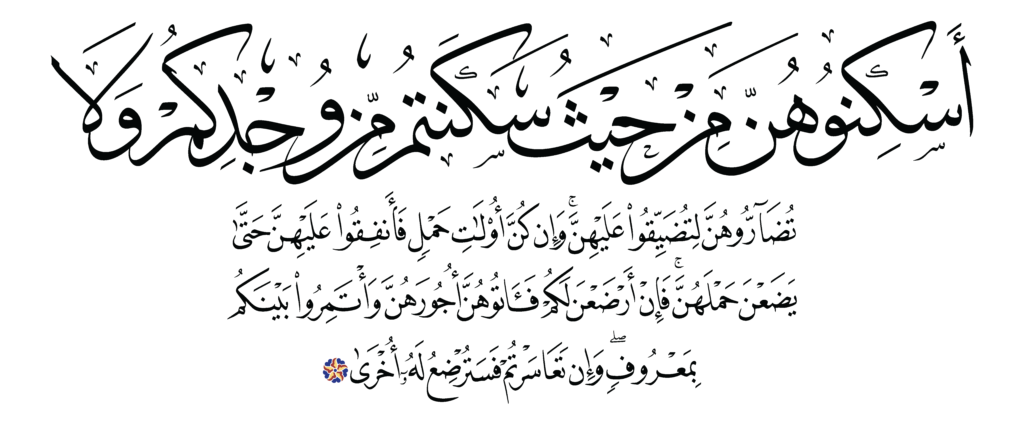 أَسْكِنُوهُنَّ مِنْ حَيْثُ سَكَنتُم مِّن وُجْدِكُمْ وَلَا
تُضَآرُّوهُنَّ لِتُضَيِّقُوا۟ عَلَيْهِنَّ ۚ وَإِن كُنَّ أُو۟لَـٰتِ حَمْلٍ فَأَنفِقُوا۟ عَلَيْهِنَّ حَتَّىٰ
يَضَعْنَ حَمْلَهُنَّ ۚ فَإِنْ أَرْضَعْنَ لَكُمْ فَـَٔاتُوهُنَّ أُجُورَهُنَّ وَأْتَمِرُوا۟ بَيْنَكُم
بِمَعْرُوفٍ ۖ وَإِن تَعَاسَرْتُمْ فَسَتُرْضِعُ لَهُۥٓ أُخْرَىٰ